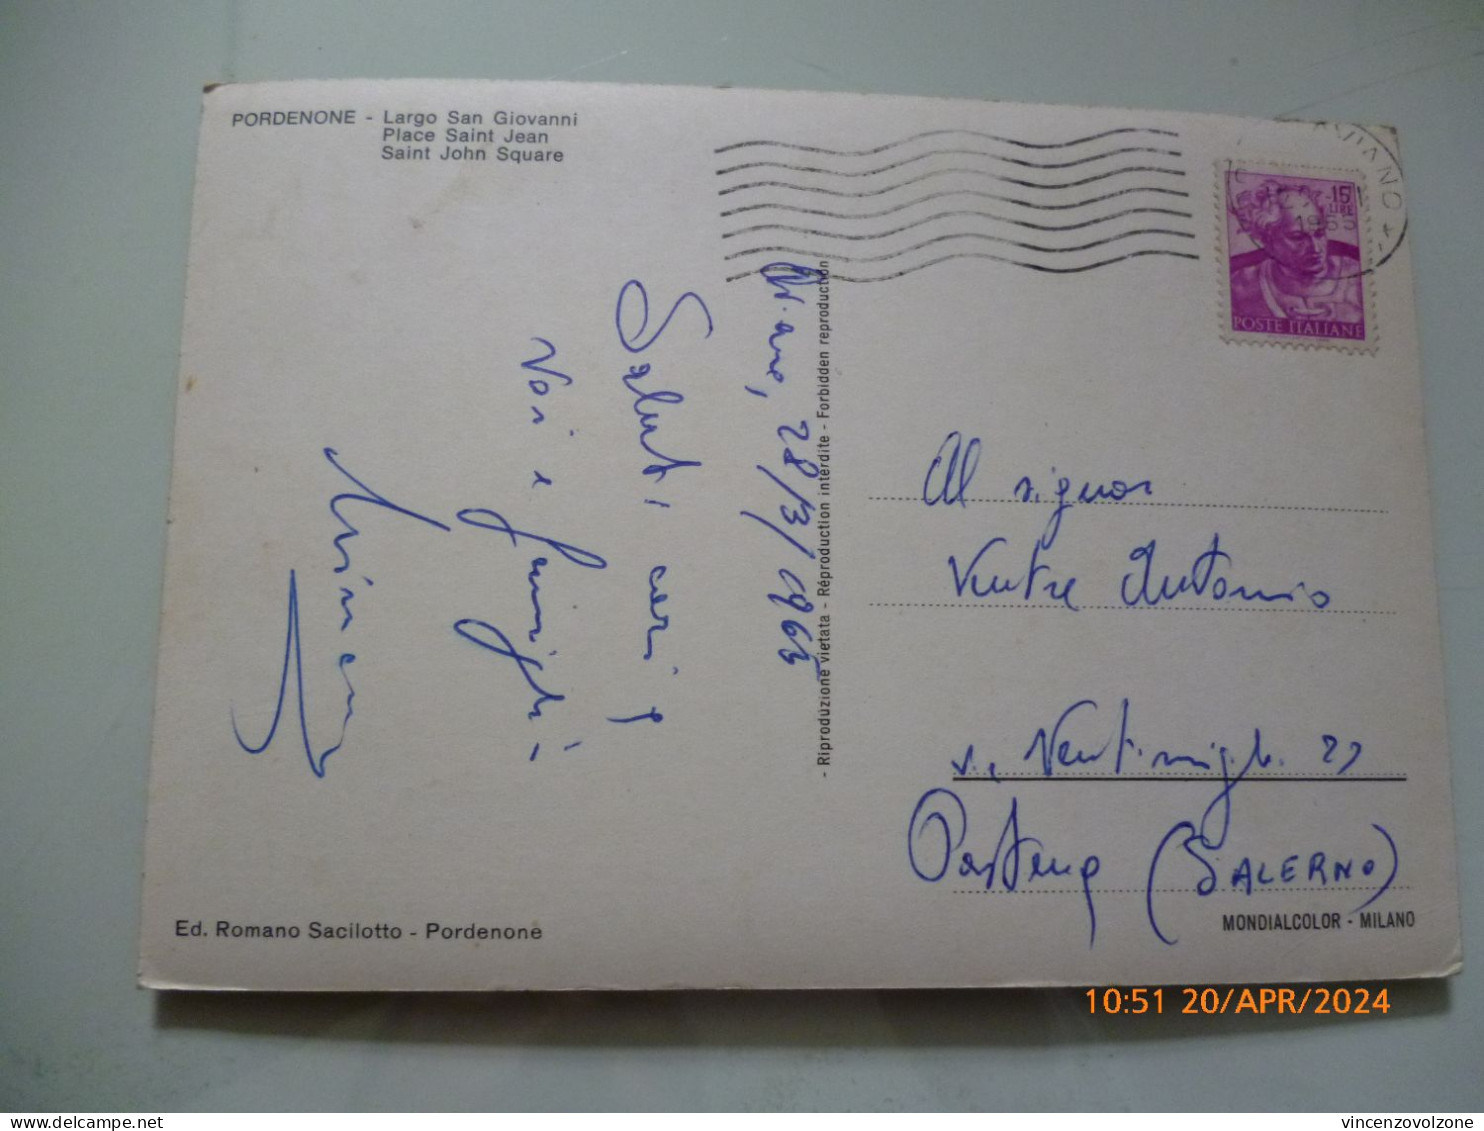 PORDENONE - Largo San Giovanni
Place Saint Jean
Saint John Square
AVIANO
1965
15
LIRE
POSTE ITALIANE
Aviano, 28/3/1965
Saluti cari
Voi e famiglia
- Riproduzione vietata - Réproduction interdite - Forbidden reproduction
Al signor
Ventre Antonio
via Ventimiglia 27
Pastena (SALERNO)
Ed. Romano Sacilotto - Pordenone
MONDIALCOLOR - MILANO
10:51 20/APR/2024
vincenzovolzone